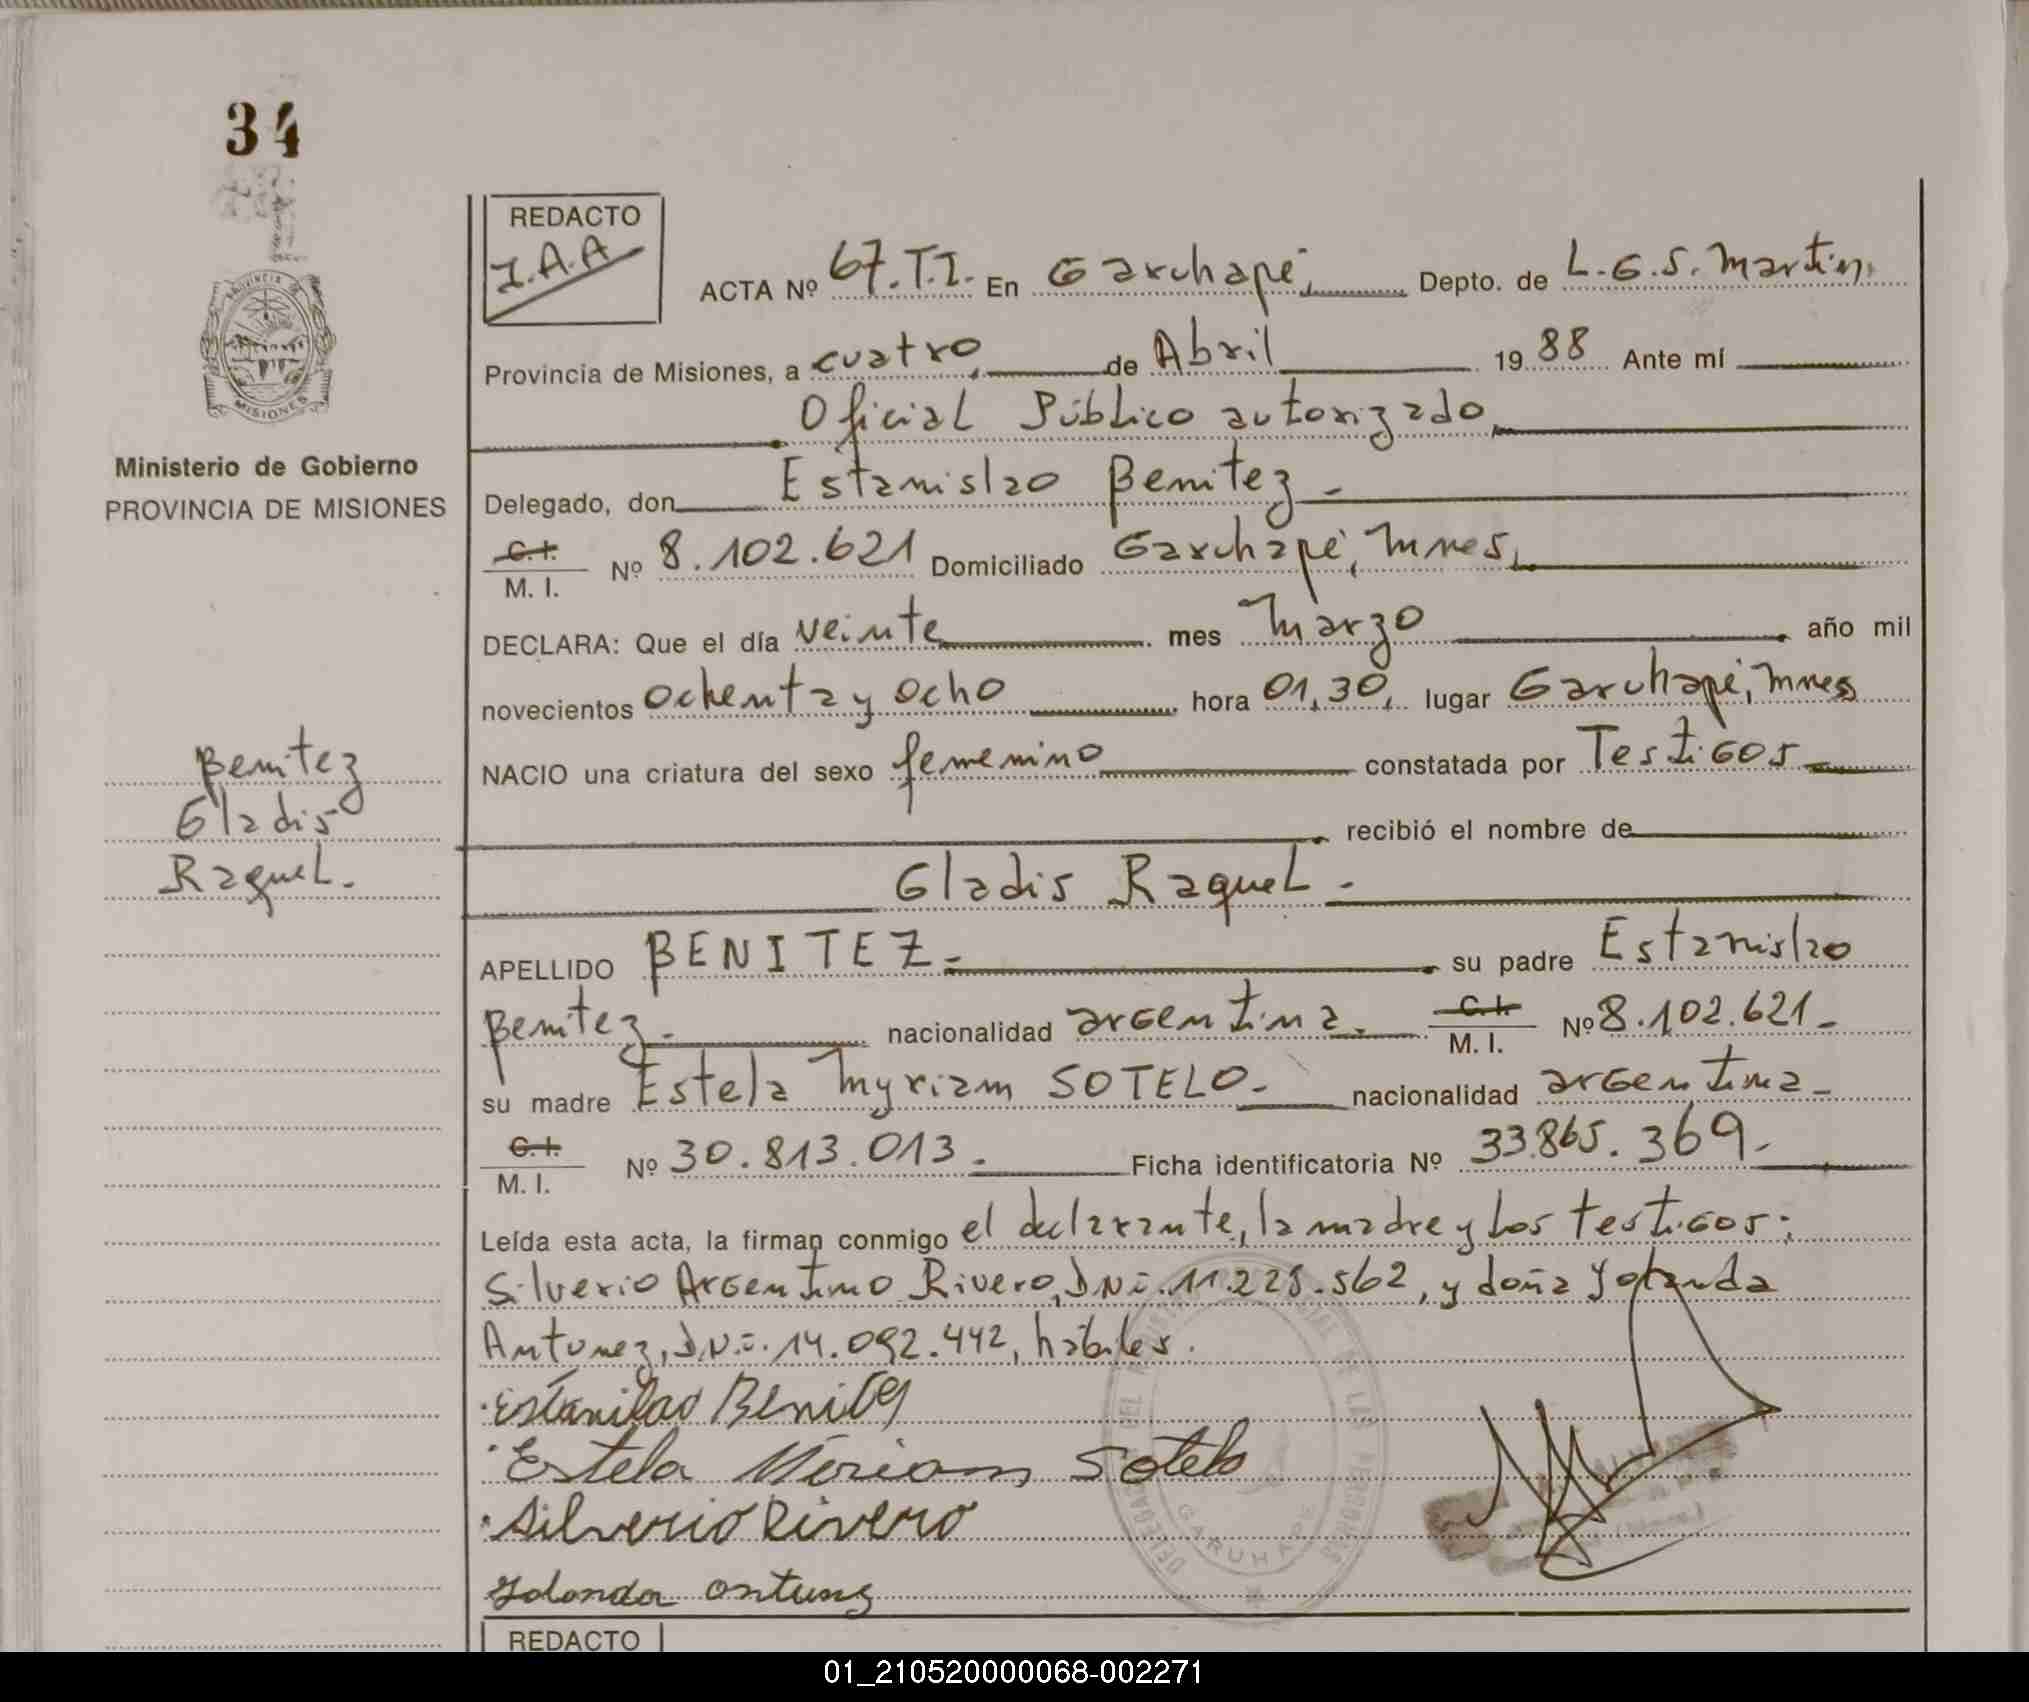 34
REDACTO
I.A.A
ACTA Nº 67.T.I. En Garuhapé, Depto. de L.G.S. Martin,
Provincia de Misiones, a cuatro, de Abril 1988 Ante mí
Oficial Público autorizado,
Delegado, don Estanislao Benitez -
C.I.
M. I. Nº 8.102.621 Domiciliado Garuhapé, Mnes,
DECLARA: Que el día veinte mes Marzo año mil
novecientos ochenta y ocho hora 01,30, lugar Garuhapé, Mnes
NACIO una criatura del sexo femenino constatada por Testigos
recibió el nombre de
Gladis Raquel -
APELLIDO BENITEZ.- su padre Estanislao
Benitez. nacionalidad argentina. C.I.
M. I. Nº 8.102.621.-
su madre Estela Myriam SOTELO.- nacionalidad argentina -
C.I.
M. I. Nº 30.813.013.- Ficha identificatoria Nº 33.865.369.-
Leída esta acta, la firman conmigo el declarante, la madre y los testigos;
Silverio Argentino Rivero, DNi. 11.225.562, y doña Yolanda
Antunez, D.N.i. 14.092.442, habiles.
Estanilao Benites
Estela Miriam Sotelo
Silverio Rivero
Yolanda Antunez
PROVINCIA DE
MISIONES
Ministerio de Gobierno
PROVINCIA DE MISIONES
Benitez
Gladis
Raquel.-
GARUHAPE
REDACTO
01_210520000068-002271